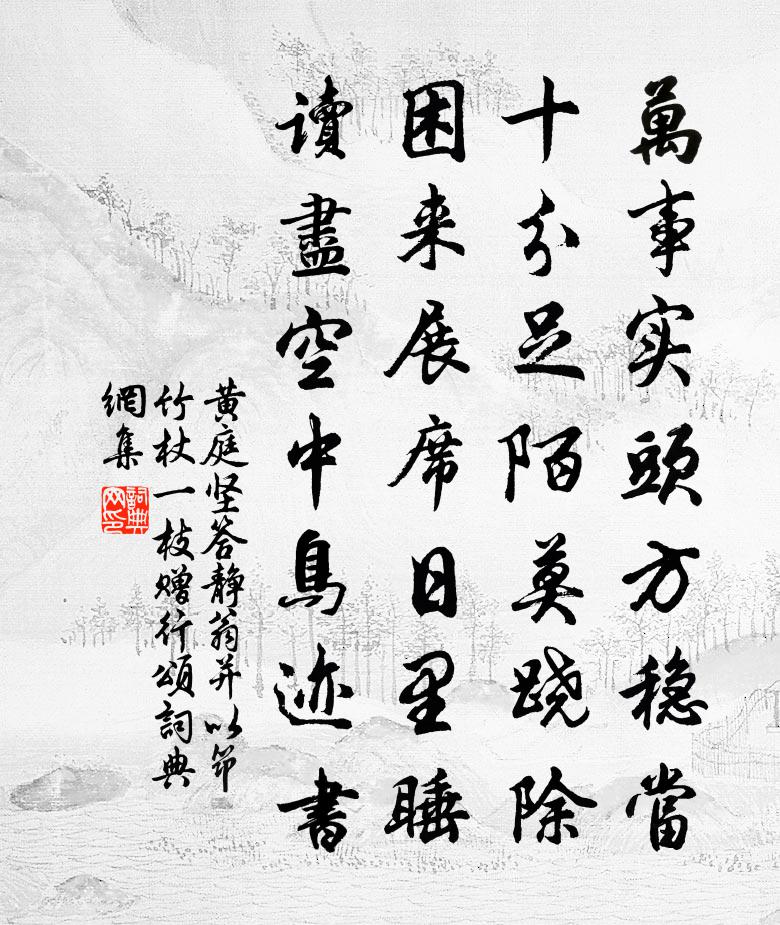 萬事实頭方穏當
十分足陌莫蹺除
困来展席日里睡
讀盡空中鳥迹書
黄庭坚答静翁并以節
竹杖一枝赠行頌詞典
網集
詞典
网印